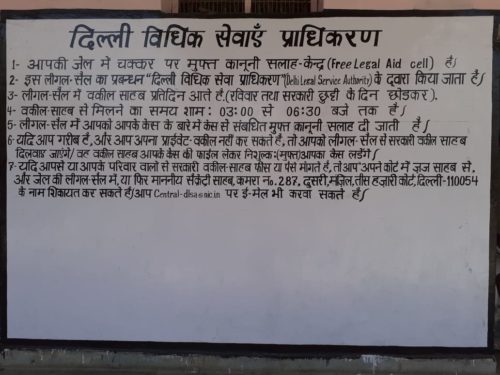 दिल्ली विधिक सेवाएँ प्राधिकरण
1- आपकी जेल में चक्कर पर मुफ्त कानूनी सलाह-केन्द्र (Free Legal Aid cell) है।
2- इस लीगल-सैल का प्रबन्धन "दिल्ली विधिक सेवा प्राधिकरण" (Delhi Legal Service Authority) के द्वारा किया जाता है।
3- लीगल-सैल में वकील साहब प्रतिदिन आते है. (रविवार तथा सरकारी छुट्टी के दिन छोड़कर).
4- वकील साहब से मिलने का समय शाम: 03:00 से 06:30 बजे तक है।
5- लीगल-सैल में आपको आपके केस के बारे में केस से संबंधित मुफ्त कानूनी सलाह दी जाती है।
6- यदि आप गरीब है, और आप अपना प्राईवेट- वकील नहीं कर सकते है, तो आपको लीगल-सैल से सरकारी वकील साहब
दिलवाए जाएंगे। वह वकील साहब आपके केस की फाईल लेकर निशुल्क: (मुफ्त) आपका केस लडेंगे।
7- यदि आपसे या आपके परिवार वालों से सरकारी वकील-साहब फीस या पैसे मांगते है, तो आप अपने कोर्ट में जज साहब से,
और जेल की लीगल-सेल में, या फिर माननीय सैक्रेट्री साहब, कमरा no.287, दूसरी, मंजिल, तीस हज़ारी कोर्ट, दिल्ली-110054
के नाम शिकायत कर सकते है। आप Central-dlsa@nic.in पर ई-मेल भी करवा सकते है।